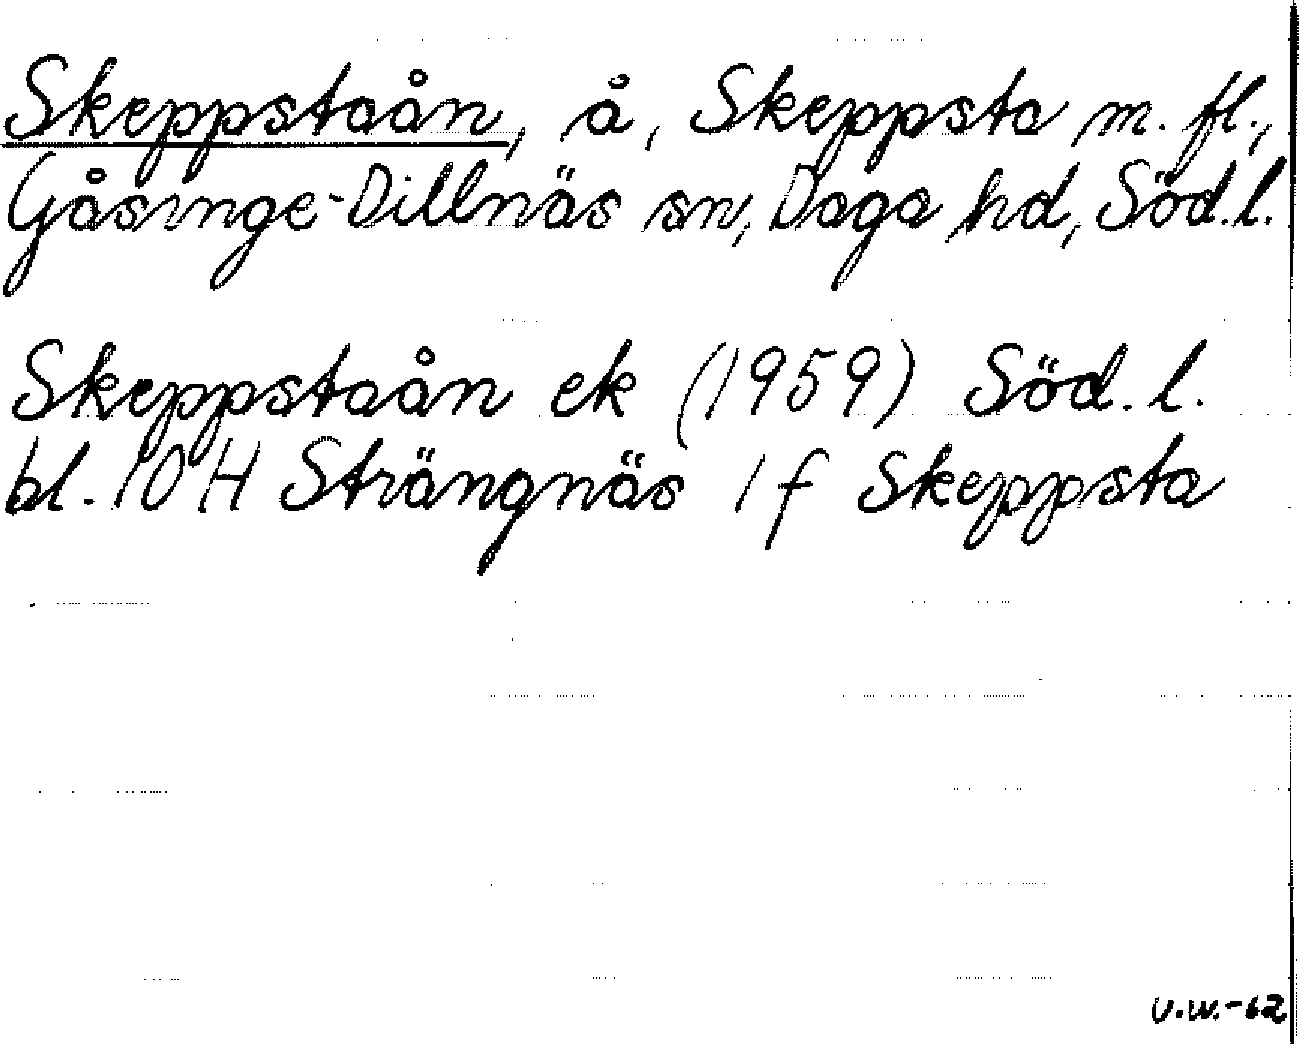 Skeppstaån, å, Skeppsta m. fl.,
Gåsinge-Dillnäs sn, Daga hd, Söd. l.
Skeppstaån ek (1959) Söd. l.
bl. 10 H Strängnäs 1 f Skeppsta
v.w.-62